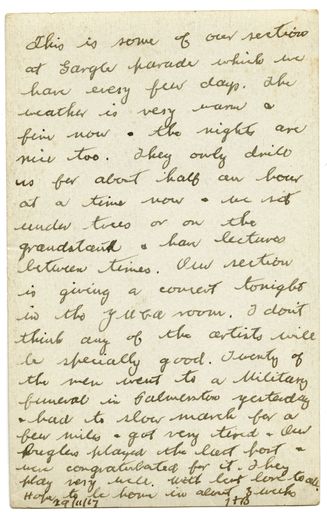 This is some of our section
at Gargle parade which we
have every few days. The
weather is very warm &
fine now & the nights are
nice too. They only drill
us for about half an hour
at a time now & we sit
under trees or on the
grandstand & have lectures
between times. Our section
is giving a concert tonight
in the YMCA room. I don't
think any of the artists will
be specially good. Twenty of
the men went to a Military
funeral in Palmerston yesterday
& had to slow march for a
few miles & got very tired. Our
Buglers played the last post &
were congratulated for it. They
play very well. With best love to all.
Hope to be home in about 3 weeks
29/11/17